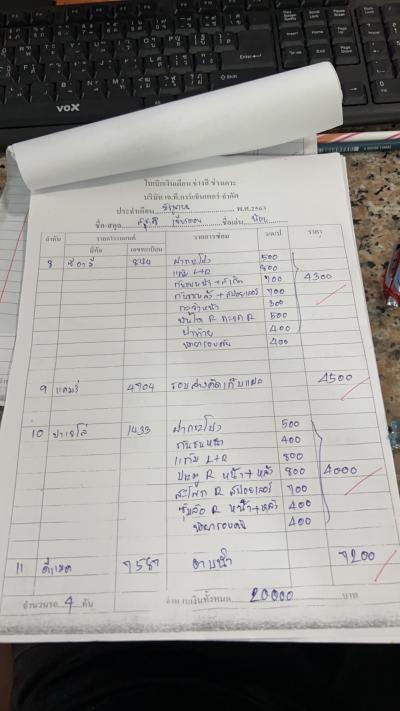 VOX
ใบเบิกเงินเดือน ช่างสี ช่างเคาะ
บริษัท เอ.ที.คาร์เซ็นเตอร์ จำกัด
ประจำเดือน ธันวาคม พ.ศ.2563
ชื่อ-สกุล ชื่อเล่น
ลำดับ รายการรถยนต์ รายการซ่อม บาท/ป ราคา
ยี่ห้อ เลขทะเบียน
8 ซีอาวี 840 ฝากระโปรง 500
แก้ม L+R 800
กันชนหน้า 700
กันชนหลัง + สปอยเลอร์ 700 4300
กระจังหน้า 300
บันได R 500
ฝาท้าย 400
400
9 แคมรี่ 4704 4500
10 ปาเจโร่ 1433 ฝากระโปรง 500
กันชนหน้า 400
แก้ม L+R 800
ประตู R หน้า+หลัง 800 4000
สะโพก R สปอยเลอร์ 700
ซุ้มล้อ R หน้า+หลัง 400
400
11 ดีแมค 7587 7200
จำนวนรถ 4 คัน จำนวนเงินทั้งหมด 20000 บาท